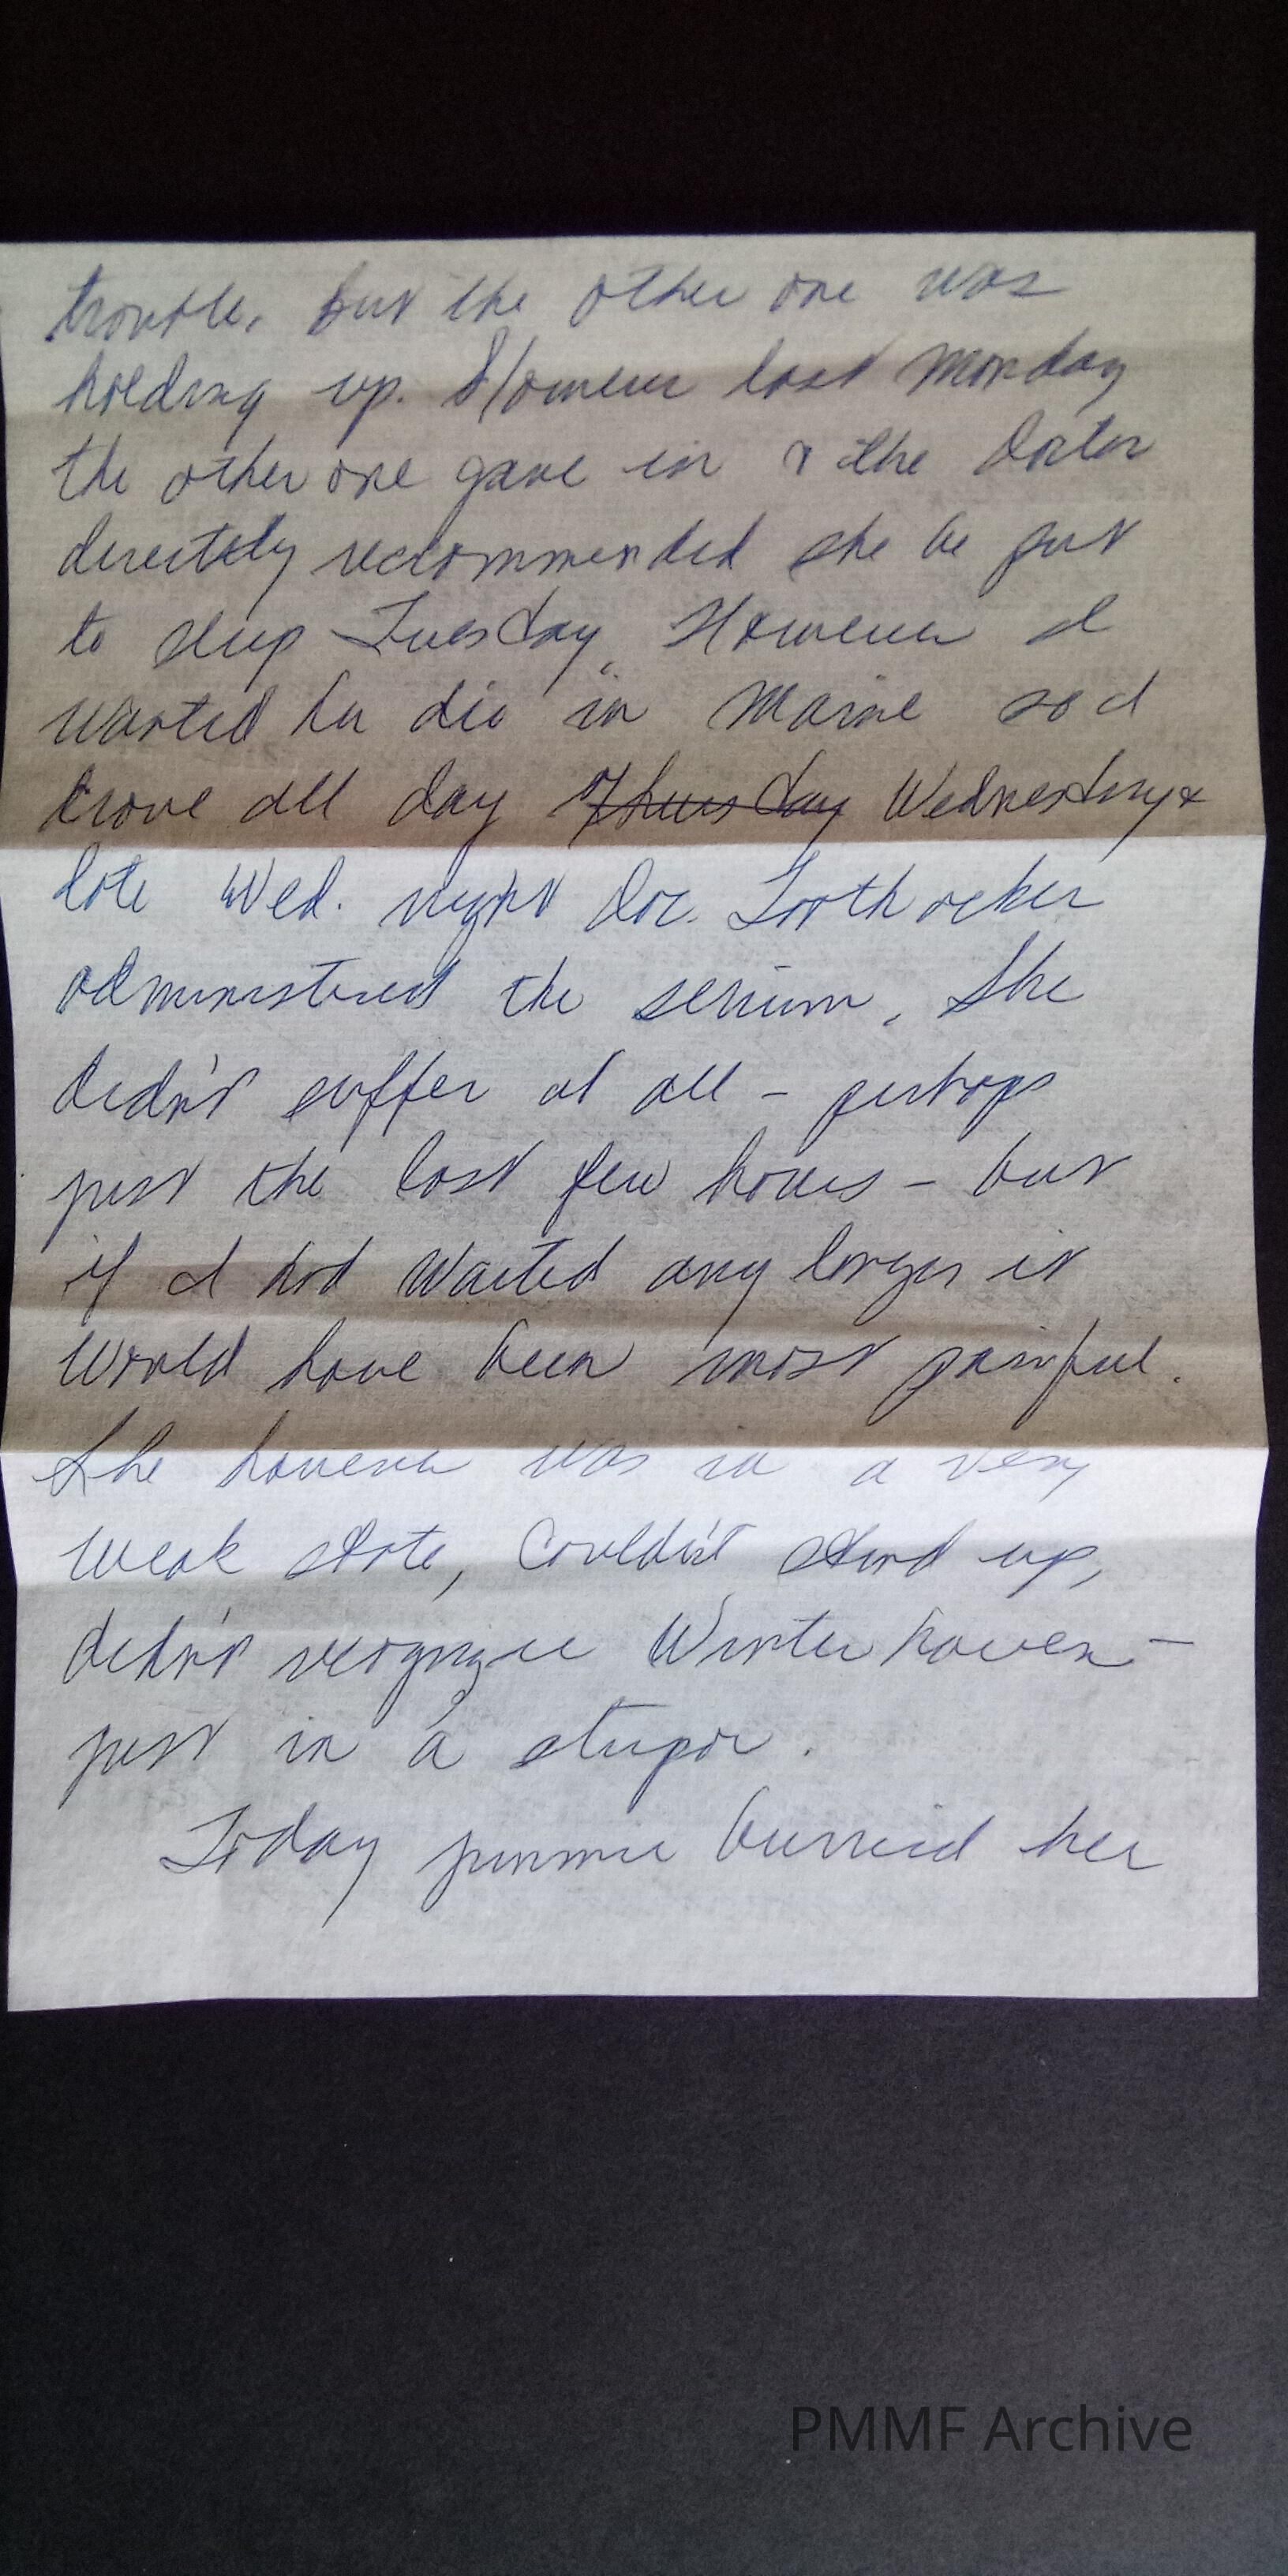 trouble, but the other one was
holding up. However last Monday
the other one gave in & the Doctor
directely recommended she be put
to sleep Tuesday, However I
wanted her die in Maine so I
drove all day Thursday Wednesday &
late Wed. night Doc. Toothacker
administered the serium, She
didn't suffer at all - perhaps
just the last few hours - but
if I had waited any longer it
would have been most painful.
She however was in a very
weak state, couldn't stand up,
didn't recognize Winterhaven -
just in a stupor.
Today Jimmie burried her
PMMF Archive